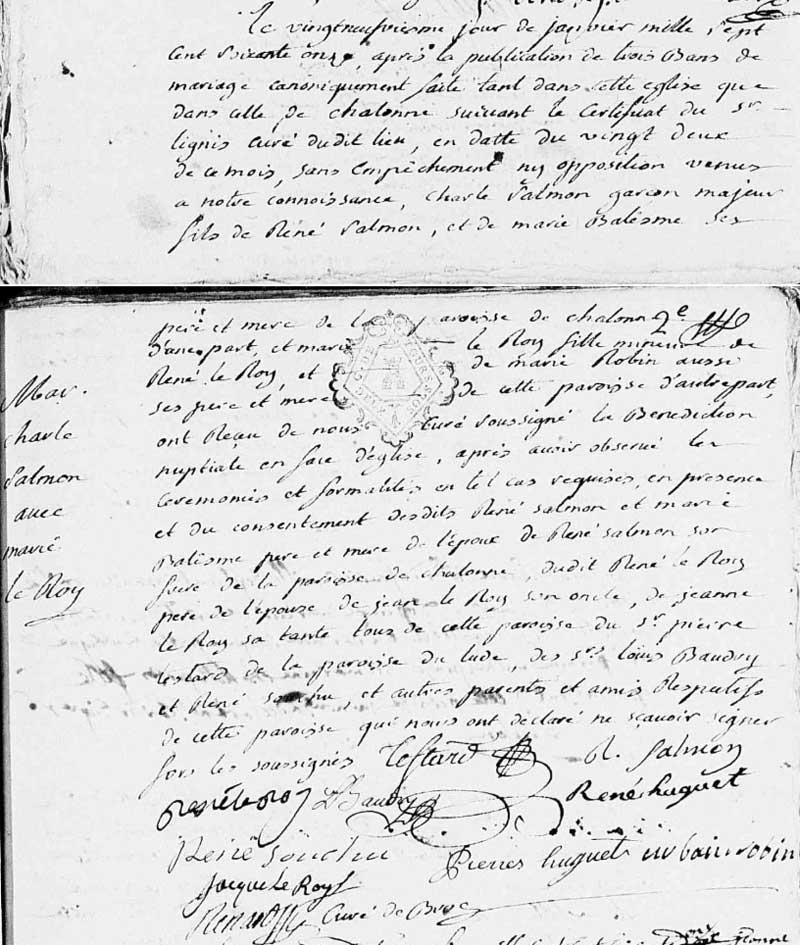 Le vingtneufviesme jour de janvier mille sept
cent soixante onze, après la publication de trois Bans de
mariage canoniquement faite tant dans cette eglise que
dans celle de chalonne suivant le Certificat du Sr
lignis Curé dudit lieu, en datte du vingt deux
de ce mois, sans empêchement ny opposition venus
a notre connoissance, Charle Salmon garçon majeur
fils de René Salmon, et de marie Balesme ses
père et mere de la paroisse de chalonne
d'une part, et marie le Roy fille mineure de
René le Roy, et de marie Robin aussi
ses pere et mere de cette paroisse d'autre part,
ont Reçu de nous Curé soussigné la Benediction
nuptiale en face d'église, après avoir observé les
Ceremonies et formalités en tel cas requises, en presence
et du consentement desdits René Salmon et marie
Balesme pere et mere de l'époux de René Salmon son
frere de la paroisse de chalonne, dudit René le Roy
pere de l'épouse de jean le Roy son oncle, de jeanne
le Roy sa tante tous de cette paroisse du Sr pierre
Lestard de la paroisse du lude, des Srs louis Baudry
et René Souchu, et autres parents et amis Respectifs
de cette paroisse qui nous ont déclaré ne sçavoir signer
fors les soussignés Lestard R. Salmon
René le Roy L Baudry René huguet
René Souchu Pierres huguet urbain robin
Jacque le Roy
Renault Curé de
Mar.
charle
Salmon
avec
marie
le Roy